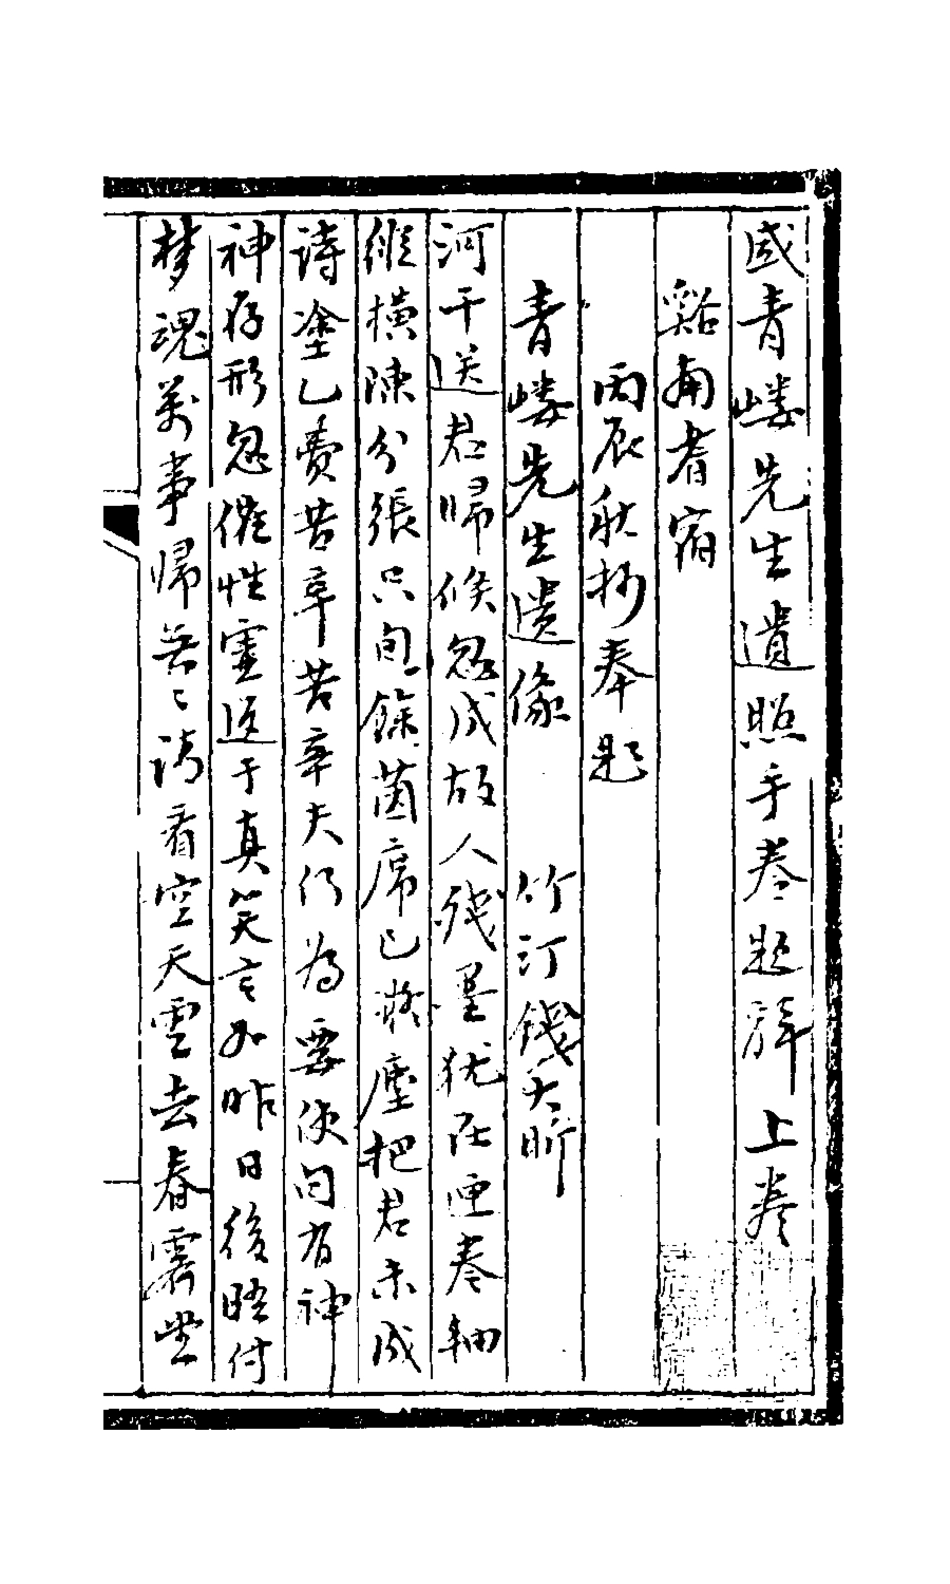 盛青嶁先生遺照手卷題辭上卷
谿南耆宿
丙辰秋抄奉題
青嶁先生遺像 竹汀錢大昕
河干送君歸倏忽成故人殘墨猶在匣卷軸
縱橫陳分張只自餘茵席已凝塵把君未成
詩塗乙費苦辛苦辛夫何為要使句有神
神存形忽催性靈返于真笑言如昨日後晤付
夢魂萬事歸若〻請看空天雲去春霽坐